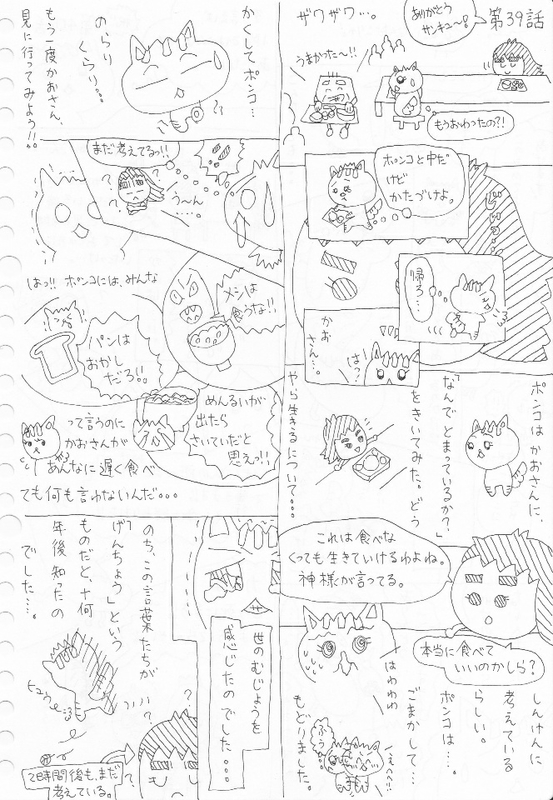 第39話
ありがとう
サンキュー〜!
ザワザワ…。
うまかった〜!!
もうおわったの?!
ポンコと中だ
けど
かたづけよ。
じーっ…
帰ろ…
かお
さん…。
は?
ポンコはかおさんに、
「なんでとまっているか?」
をきいてみた。どう
やら生きるについて…
これは食べな
くっても生きていけるわよね。
神様が言ってる。
本当に食べて
いいのかしら?
しんけんに
考えている
らしい。
ポンコは…。
はわわわ
ごまかして…
もどりました。
ふぅ…
へへへ!!
かくしてポンコ…
のらり
くらり…
もう一度かおさん、
見に行ってみよう!!。
まだ考えてるっ!!
う〜ん
……
はっ!! ポンコには、みんな
メシは
食うな!!
パンは
おかし
だろ!!
めんるいが
出たら
さいていだと
思えっ!!
って言うのに
かおさんが
あんなに遅く食べ
ても何も言わないんだ…
世のむじょうを
感じたのでした…。
のち、この言葉たちが
「げんちょう」という
ものだと、十何
年後知ったの
でした…。
ヒュウ〜
2時間後も、まだ
考えている。